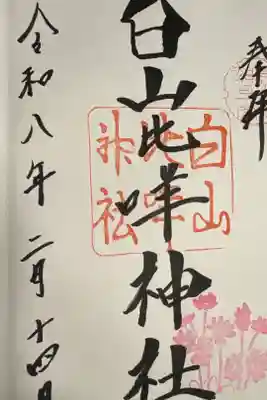 奉拝
白山比咩神社
白山
比咩
神社
令和八年 二月十四日